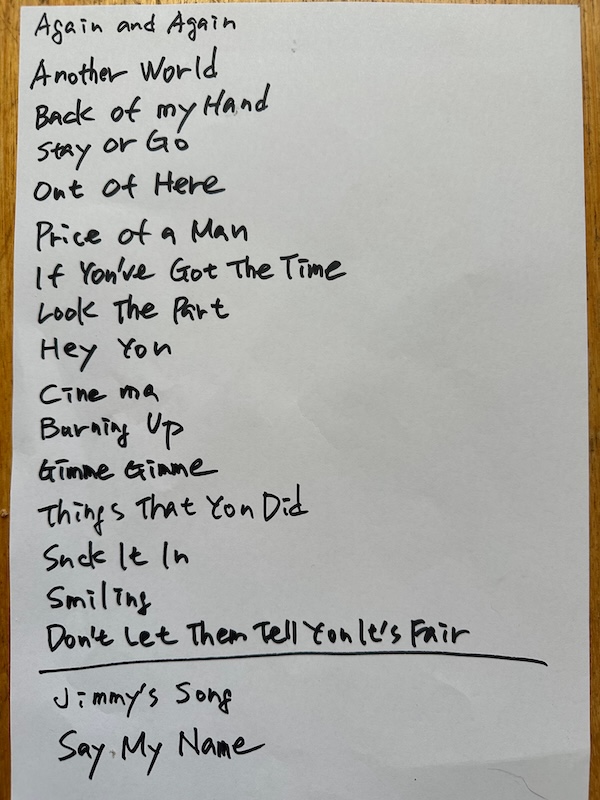 Again and Again
Another World
Back of my Hand
Stay or Go
Out of Here
Price of a Man
If You've Got The Time
Look The Part
Hey You
Cinema
Burning Up
Gimme Gimme
Things That You Did
Suck It In
Smiling
Don't Let Them Tell You It's Fair
Jimmy's Song
Say My Name